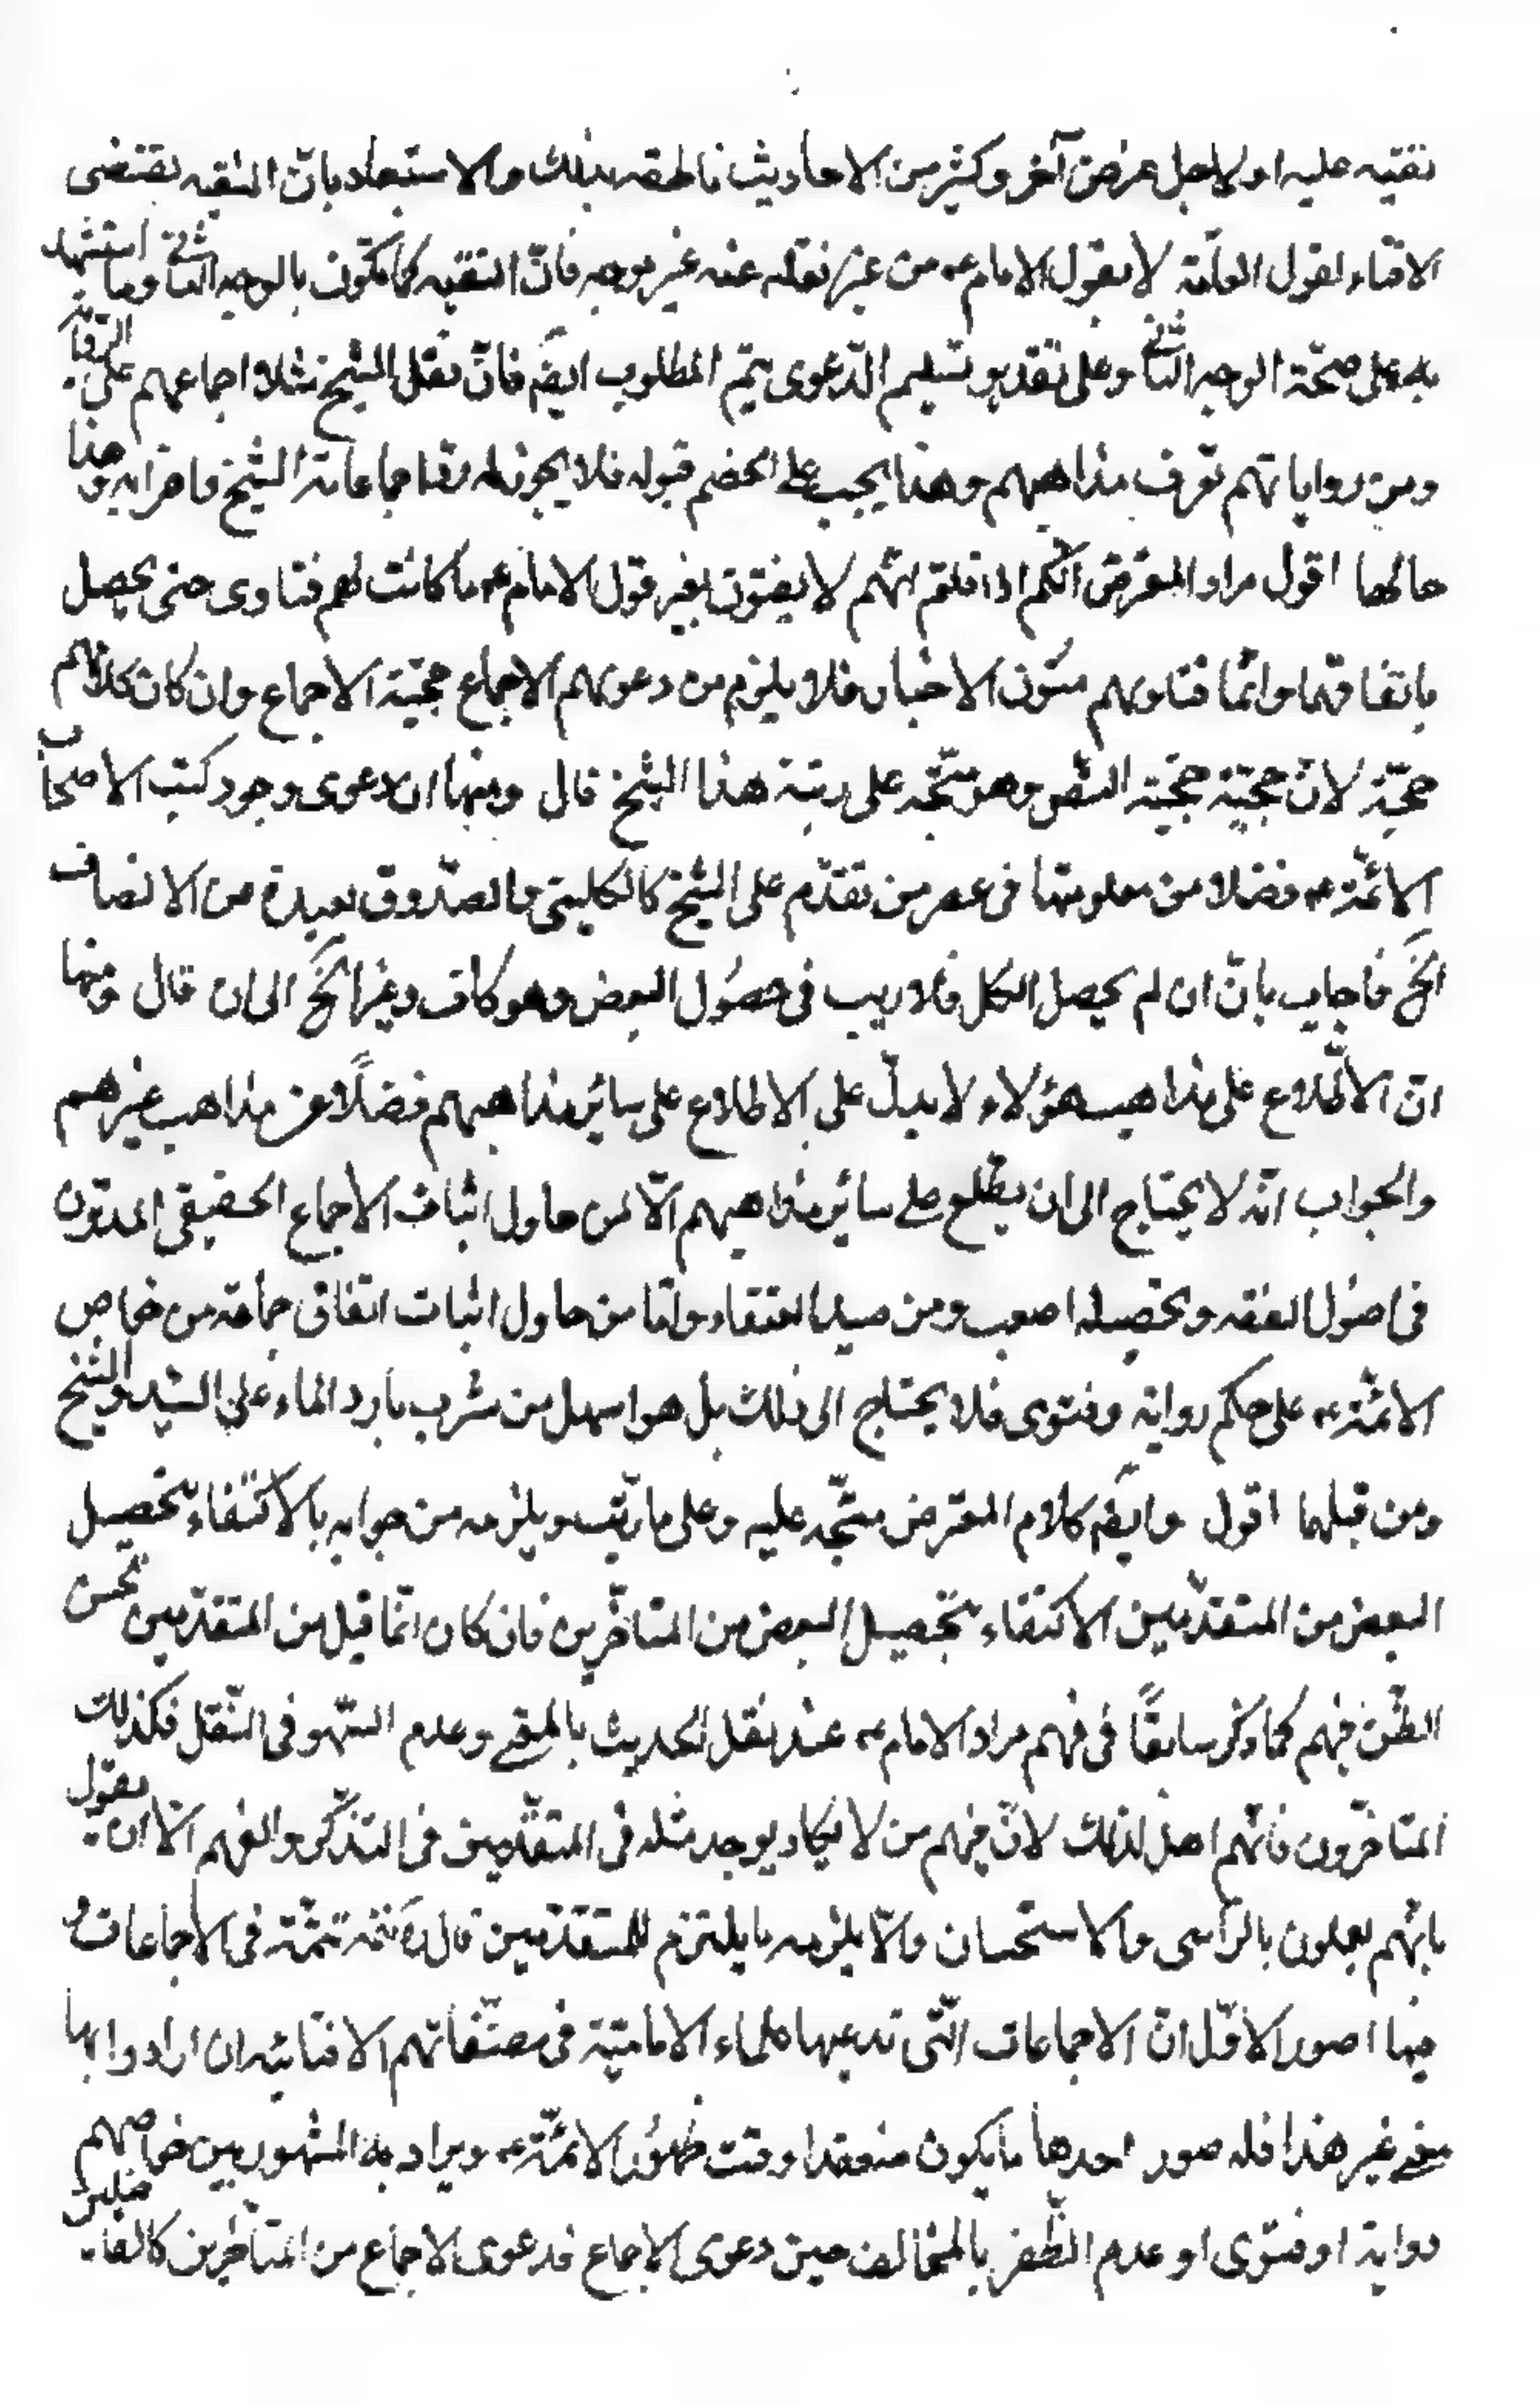 تقيّه عليه او لاجل غرض آخر وكثير من الاحاديث ناطقه بذلك والاستبعاد بانّ الثقه يقتضى
الافتاء لقول العامّة لا بقول الامام ع من غير نقله عنه غير موجه فانّ التقيه كما يكون بالوجه الثانى وما استشهد
به على صحّة الوجه الثانى وعلى تقدير تسليم الدّعوى يتم المطلوب ايضً فانّ نقل الشيخ مثلا اجماعهم على
ومن رواياتهم تعرف مذاهبهم وهذا يجب على الخصم قبوله فلا يجوز له رد اجماعات الشيخ واضرابه وهذا
حالها اقول مراد المعترض انّكم اذا قلتم انّهم لا يفتون بغير قول الامام ع ما كانت لهم فتاوى حتى يحصل
باتفاقها وانّما فتاويهم متون الاخبار فلا يلزم من دعويهم الاجماع حجيّة الاجماع وان كان كلامهم
حجّة لانّ حجيّته حجيّة النصّ وهو متّجه على رتبة هذا الشيخ قال ومنها ان دعوى وجود كتب الاصحاب
الائمّة ع فضلا من معلوميتها فى عصر من تقدّم على الشيخ كالكلينى والصّدوق بعيدة من الانصاف
الخ فاجاب بانّ ان لم يحصل الكل فلا ريب فى حصُول البعض وهو كاف وغير الخ الى ان قال ومنها
انّ الاطّلاع على مذاهب هؤلاء لا يدلّ على الاطلاع على سائر مذاهبهم فضلًا عن مذاهب غيرهم
والجواب انّه لا يحتاج الى ان يطّلع على سائر مذاهبهم الّا لمن حاول اثبات الاجماع الحقيقى المدوّن
فى اصُول الفقه وتحصيله اصعب ومن صيد العنقاء وامّا من حاول اثبات اتفاق جماعة من خواص
الائمّة ع على حكم رواية وفتوى فلا يحتاج الى ذلك بل هو اسهل من شرب بارد الماء على السّيد والشّيخ
ومن قبلهما اقول وايضً كلام المعترض متّجه عليه وعلى ما رتّب ويلزمه من جوابه بالاكتفاء بتحصيل
البعض من المتقدّمين الاكتفاء بتحصيل البعض من المتاخّرين فان كان انّما قيل من المتقدّمين لحسن
الظّن فيهم كما ذكر سابقًا فى فهم مراد الامام ع عند نقل الحديث بالمعنى وعدم السّهو فى النّقل فكذلك
المتاخّرون فانّهم اهل لذلك لانّ فيهم من لا يكاد يوجد مثله فى المتقدّمين فى التذكّر والفهم الّا ان يقول
بانّهم يعملون بالرّأى والاستحسان والّا يلزمه ما يلتزم للمتقدّمين قال تتمّة فى الاجماعات و
فيها امور الاوّل انّ الاجماعات الّتى تدعيها علماء الاماميّة فى مصنّفاتهم الافتائيه ان ارادوا بها
معنى غير هذا فله صور احدها ما يكون منعقدا وقت ظهُور الائمّة ع ويراد به المشهور بين خواصهم
رواية او فتوى او عدم الظّفر بالمخالف حين دعوى الاجماع فدعوى الاجماع من المتاخّرين كالفاضلين